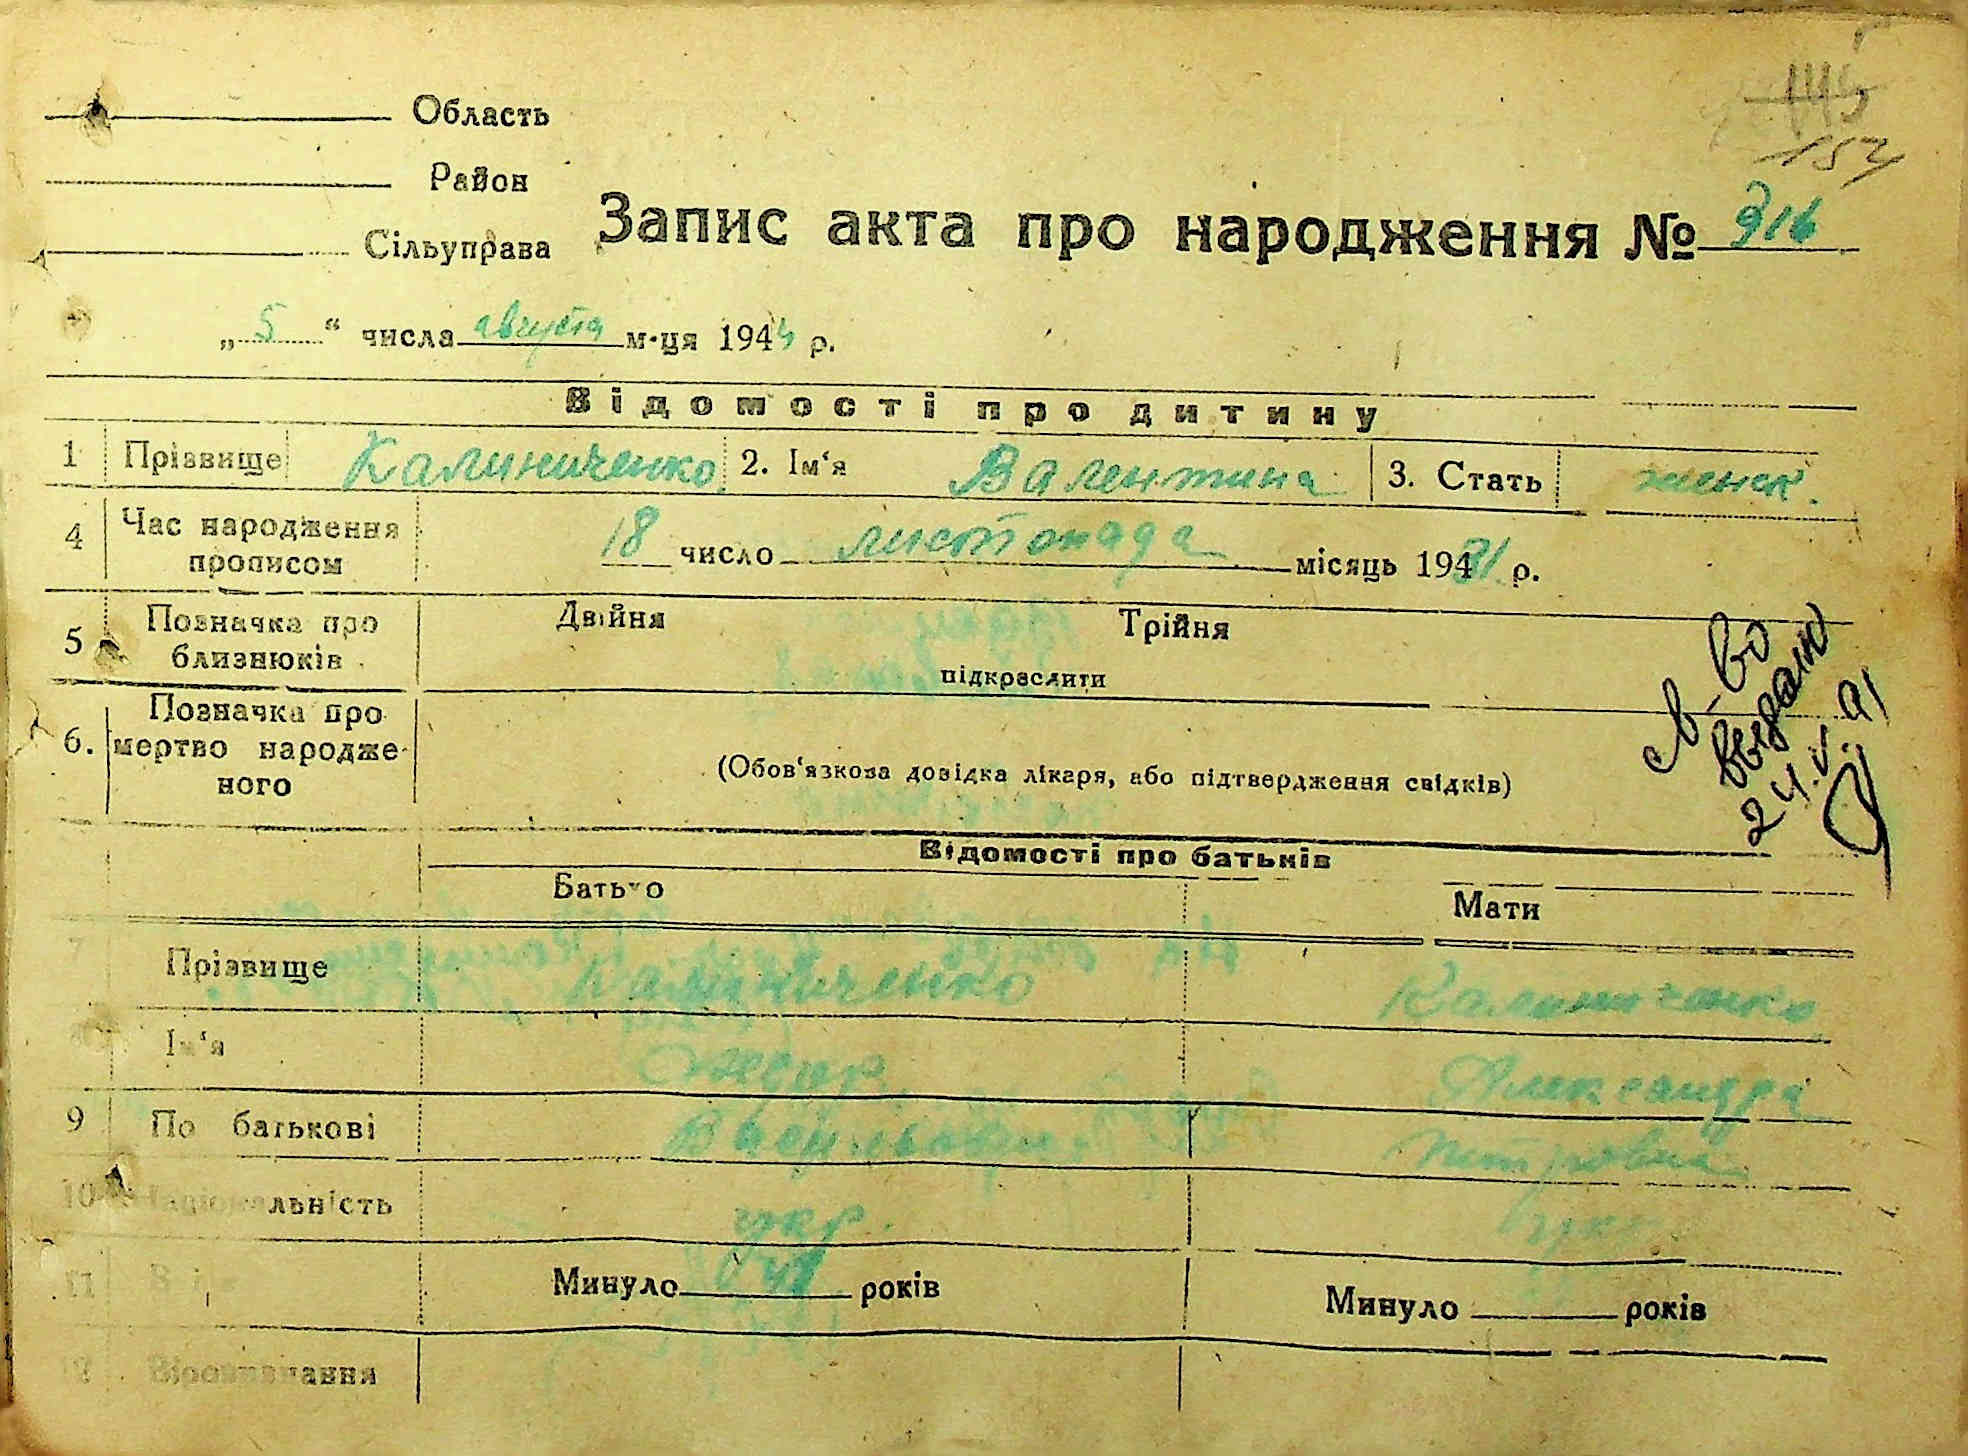 145
153
Область
Район
Сільуправа
Запис акта про народження № 316
„ 5 “ числа августа м-ця 1943 р.
Відомості про дитину
1 Прізвище Калиниченко 2. Ім‘я Валентина 3. Стать женск.
4 Час народження прописом 18 число листопада місяць 1941 р.
5 Позначка про близнюків Двійня Трійня
підкреслити
6. Позначка про мертво народженого
(Обов‘язкова довідка лікаря, або підтвердження свідків)
св-во
выдано
24.V.91
Відомості про батьків
Батько Мати
7 Прізвище Калиниченко Калиниченко
Ім‘я Александра
9 По батькові Васильевич Петровна
10 Національність укр. укр.
11 Минуло 41 років Минуло років
12 Віровизнання